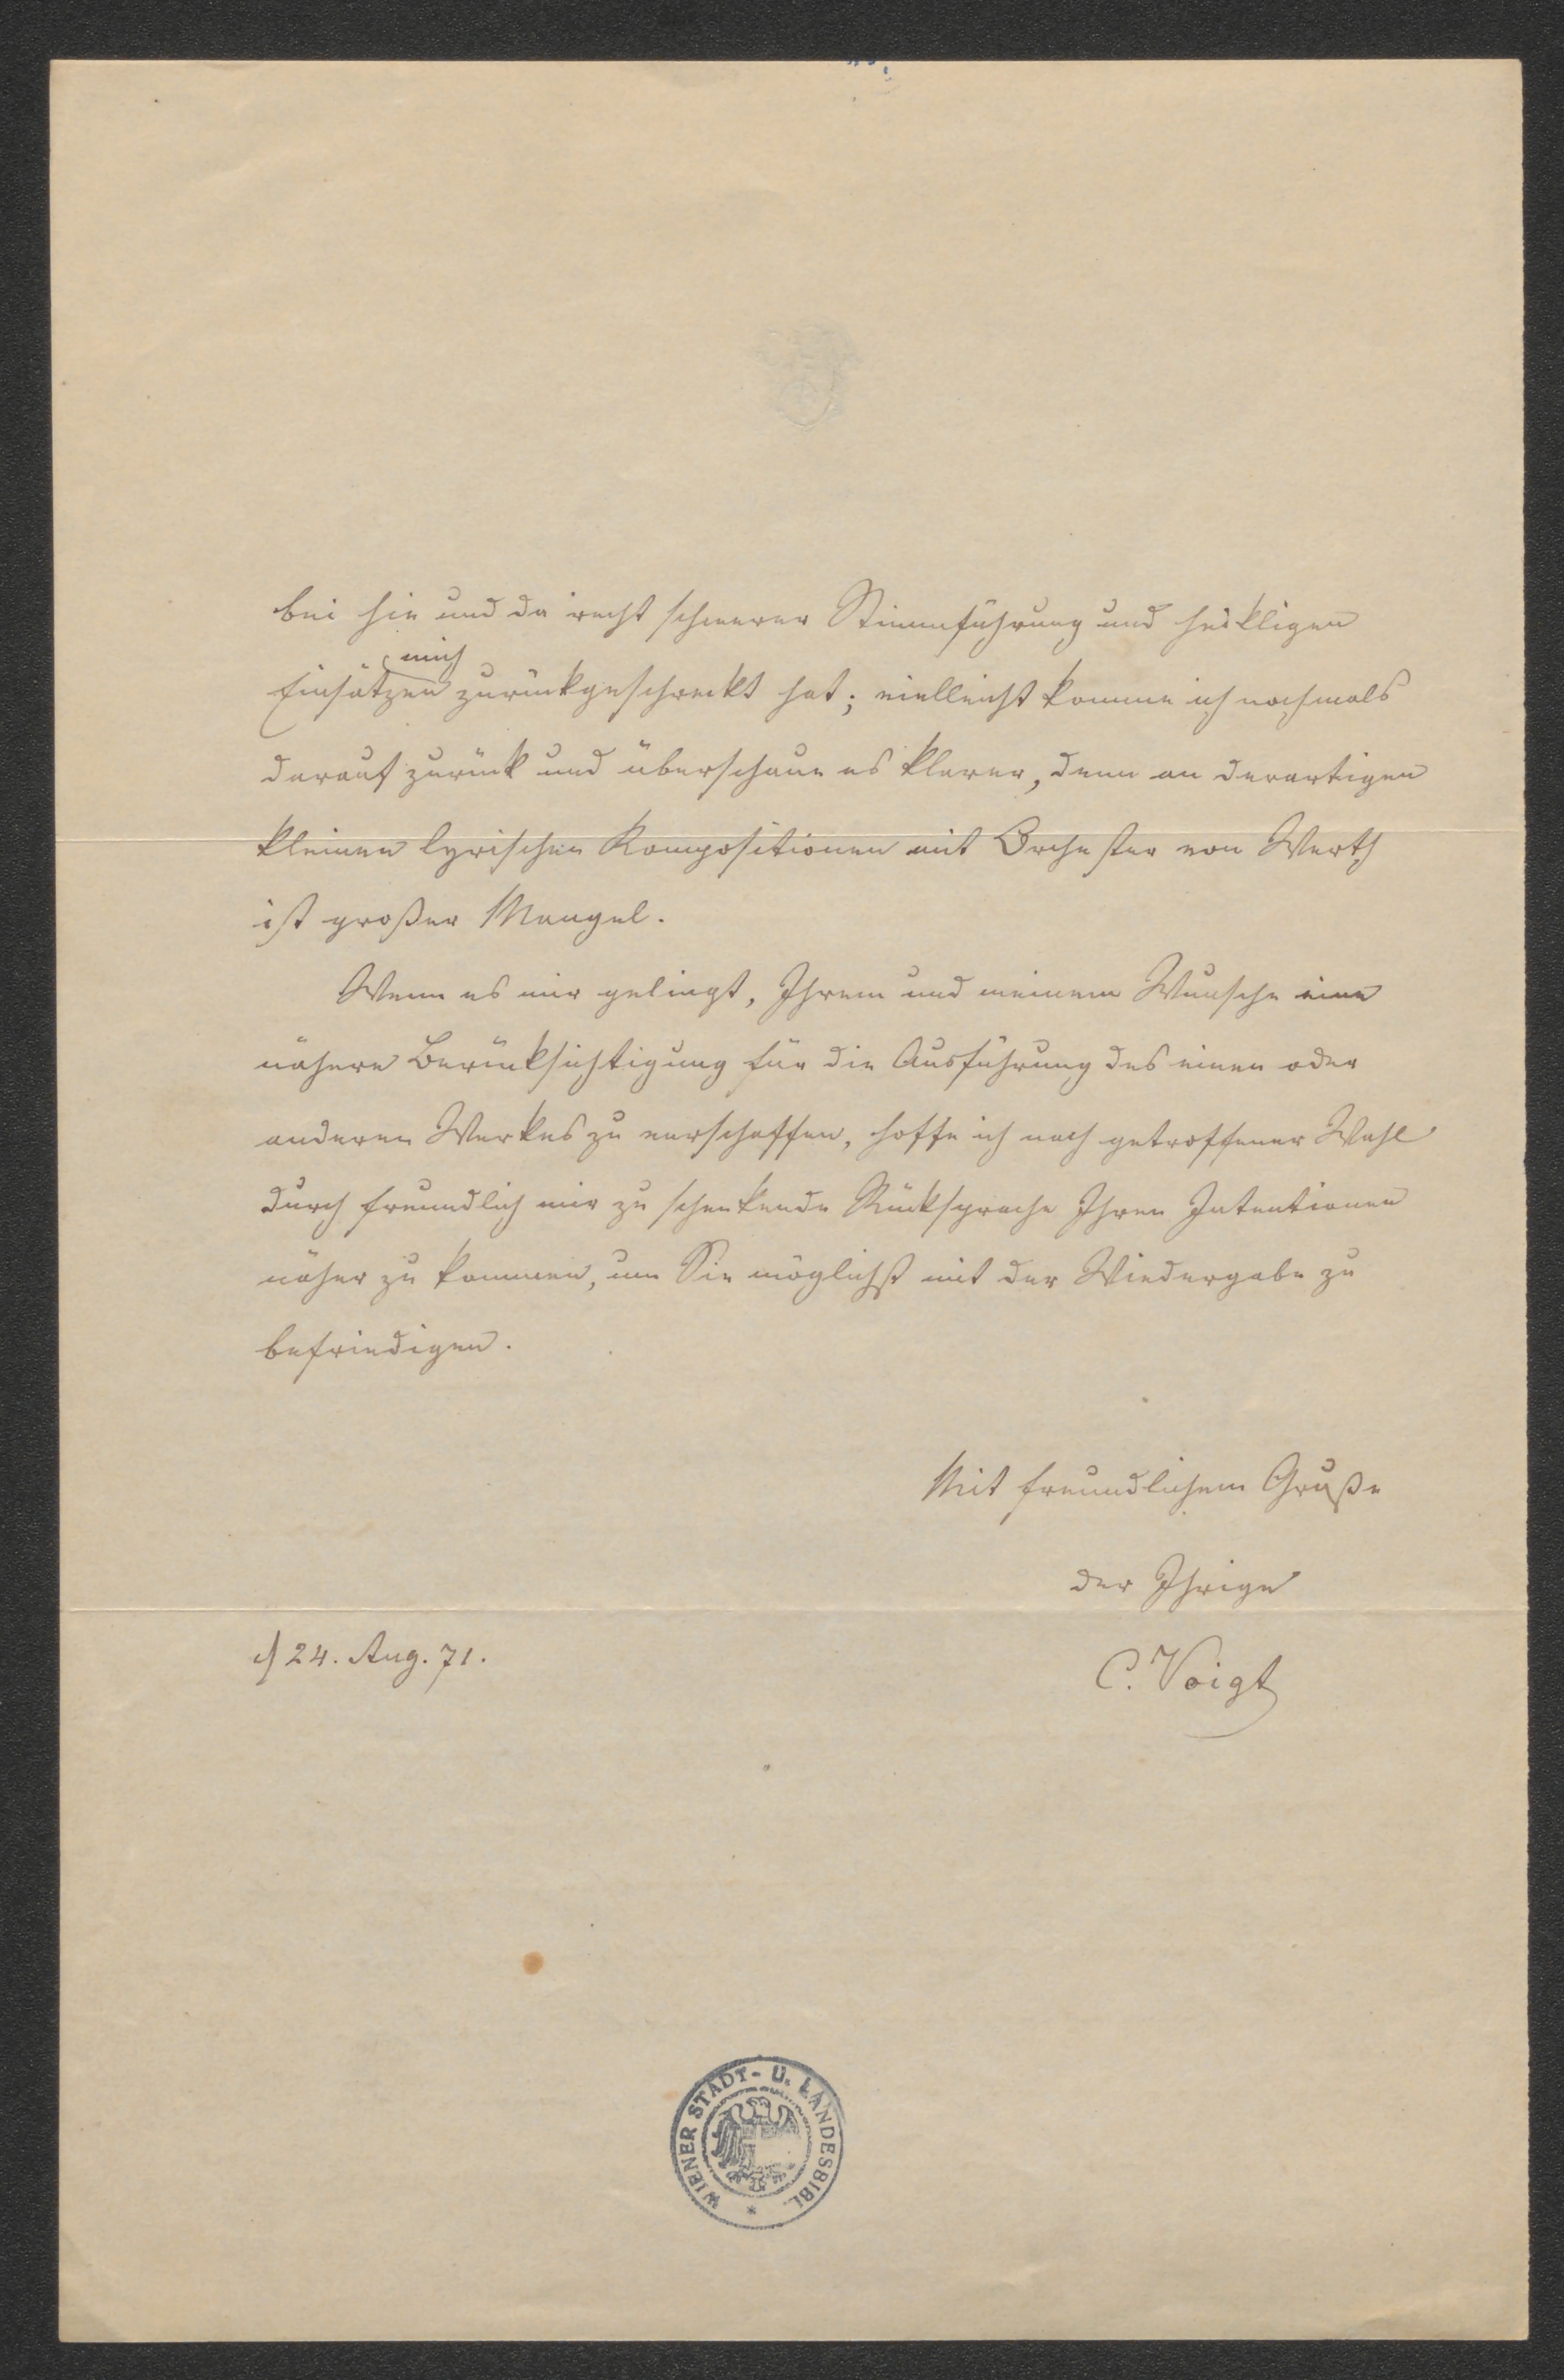 bei hie und da recht schwerer Stimmführung und heikligen
mich
Einsätzen zurückgeschreckt hat; vielleicht komme ich nochmals
darauf zurück und überschaue es klarer, denn an derartigen
kleinen lyrischen Kompositionen mit Orchester von Werth
ist großer Mangel.
Wenn es mir gelingt, Ihrem und meinem Wunsche eine
nähere Berücksichtigung für die Ausführung des einen oder
anderen Werkes zu verschaffen, hoffe ich nach getroffener Wahl
durch freundlich mir zu schenkende Rücksprache Ihren Intentionen
näher zu kommen, um Sie möglichst mit der Wiedergabe zu
befriedigen.
Mit freundlichem Gruße
der Ihrige
24. Aug. 71.
C. Voigt
WIENER STADT- U. LANDESBIBL.